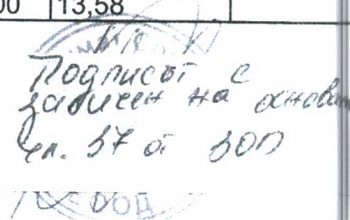 00 13,58
Подписът е
заличен на основан
чл. 37 от ЗОП
ООД